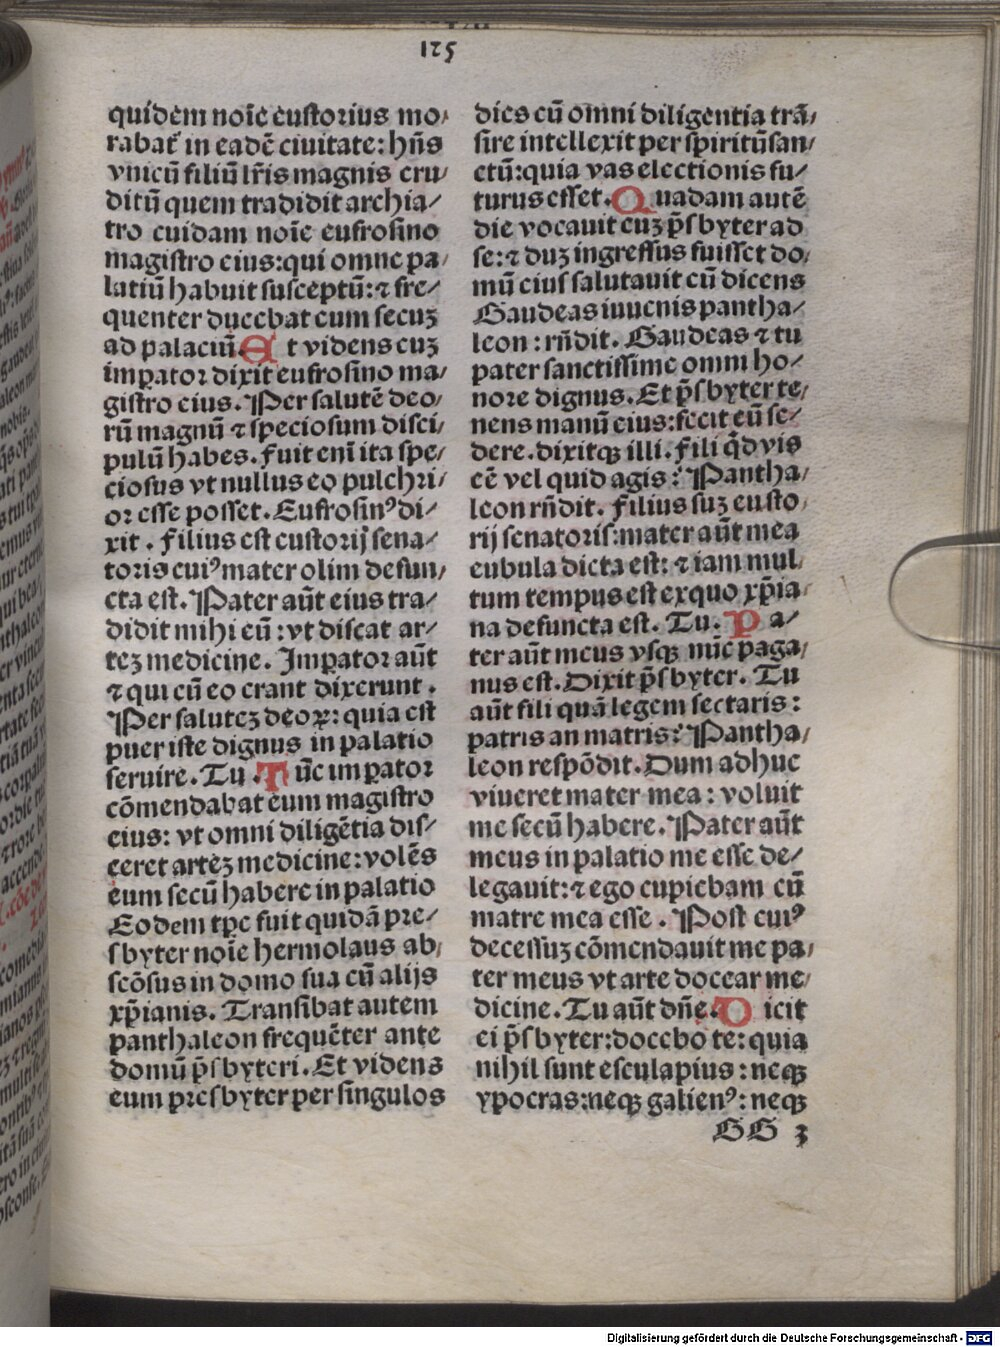 125
quidem noīe eustorius mo/
rabat᷑ in eadē ciuitate: hn̄s
vnicū filiū lr̄is magnis eru/
ditū quem tradidit archia/
tro cuidam noīe eufrosino
magistro eius:qui omne pa/
latiū habuit susceptū: ⁊ fre/
quenter ducebat eum secuꝫ
ad palaciū. Et videns euꝫ
imꝑator dixit eufrosino ma/
gistro eius. Per salutē deo/
rū magnū ⁊ speciosum disci/
pulū habes. Fuit eni̅ ita spe/
ciosus vt nullus eo pulchri/
or esse posset. Eufrosinꝰ di/
xit. Filius est eustorij sena/
toris cuiꝰ mater olim defun/
cta est. Pater aūt eius tra/
didit mihi eū: vt discat ar/
teꝫ medicine. Imꝑator aūt
⁊ qui cū eo erant dixerunt.
Per saluteꝫ deoꝝ: quia est
puer iste dignus in palatio
seruire. Tu. Tūc imꝑator
cōmendabat eum magistro
eius: vt omni diligētia dis/
ceret arteꝫ medicine: volēs
eum secū habere in palatio
Eodem tꝑe fuit quidā pre/
sbyter noīe hermolaus ab/
scōsus in domo sua cū alijs
xp̄ianis. Transibat autem
panthaleon frequēter ante
domū p̄sbyteri. Et videns
eum presbyter per singulos
dies cū omni diligentia trā/
sire intellexit per spiritū san/
ctū: quia vas electionis fu/
turus esset. Quadam autē
die vocauit euꝫ p̄sbyter ad
se: ⁊ duꝫ ingressus fuisset do/
mū eius salutauit eū dicens
Gaudeas iuuenis pantha/
leon: rn̄dit. Gaudeas ⁊ tu
pater sanctissime omni ho/
nore dignus. Et p̄sbyter te/
nens manū eius: fecit eū se/
dere. dixitqꝫ illi. Fili qd̄ vis
eē vel quid agis: Pantha/
leon rn̄dit. Filius suꝫ eusto/
rij senatoris: mater aūt mea
eubula dicta est: ⁊ iam mul/
tum tempus est exquo xp̄ia/
na defuncta est. Tu. Pa/
ter aūt meus vsqꝫ nūc paga/
nus est. Dixit p̄sbyter. Tu
aūt fili quā legem sectaris:
patris an matris: Pantha/
leon respōdit. Dum adhuc
viueret mater mea: voluit
me secū habere. Pater aūt
meus in palatio me esse de/
legauit: ⁊ ego cupiebam cū
matre mea esse. Post cuiꝰ
decessuꝫ cōmendauit me pa/
ter meus vt arte docear me/
dicine. Tu aūt dn̄e. Dicit
ei p̄sbyter: docebo te: quia
nihil sunt esculapius: neqꝫ
ypocras: neqꝫ galienꝰ: neqꝫ
GG 3
Digitalisierung gefördert durch die Deutsche Forschungsgemeinschaft - DFG